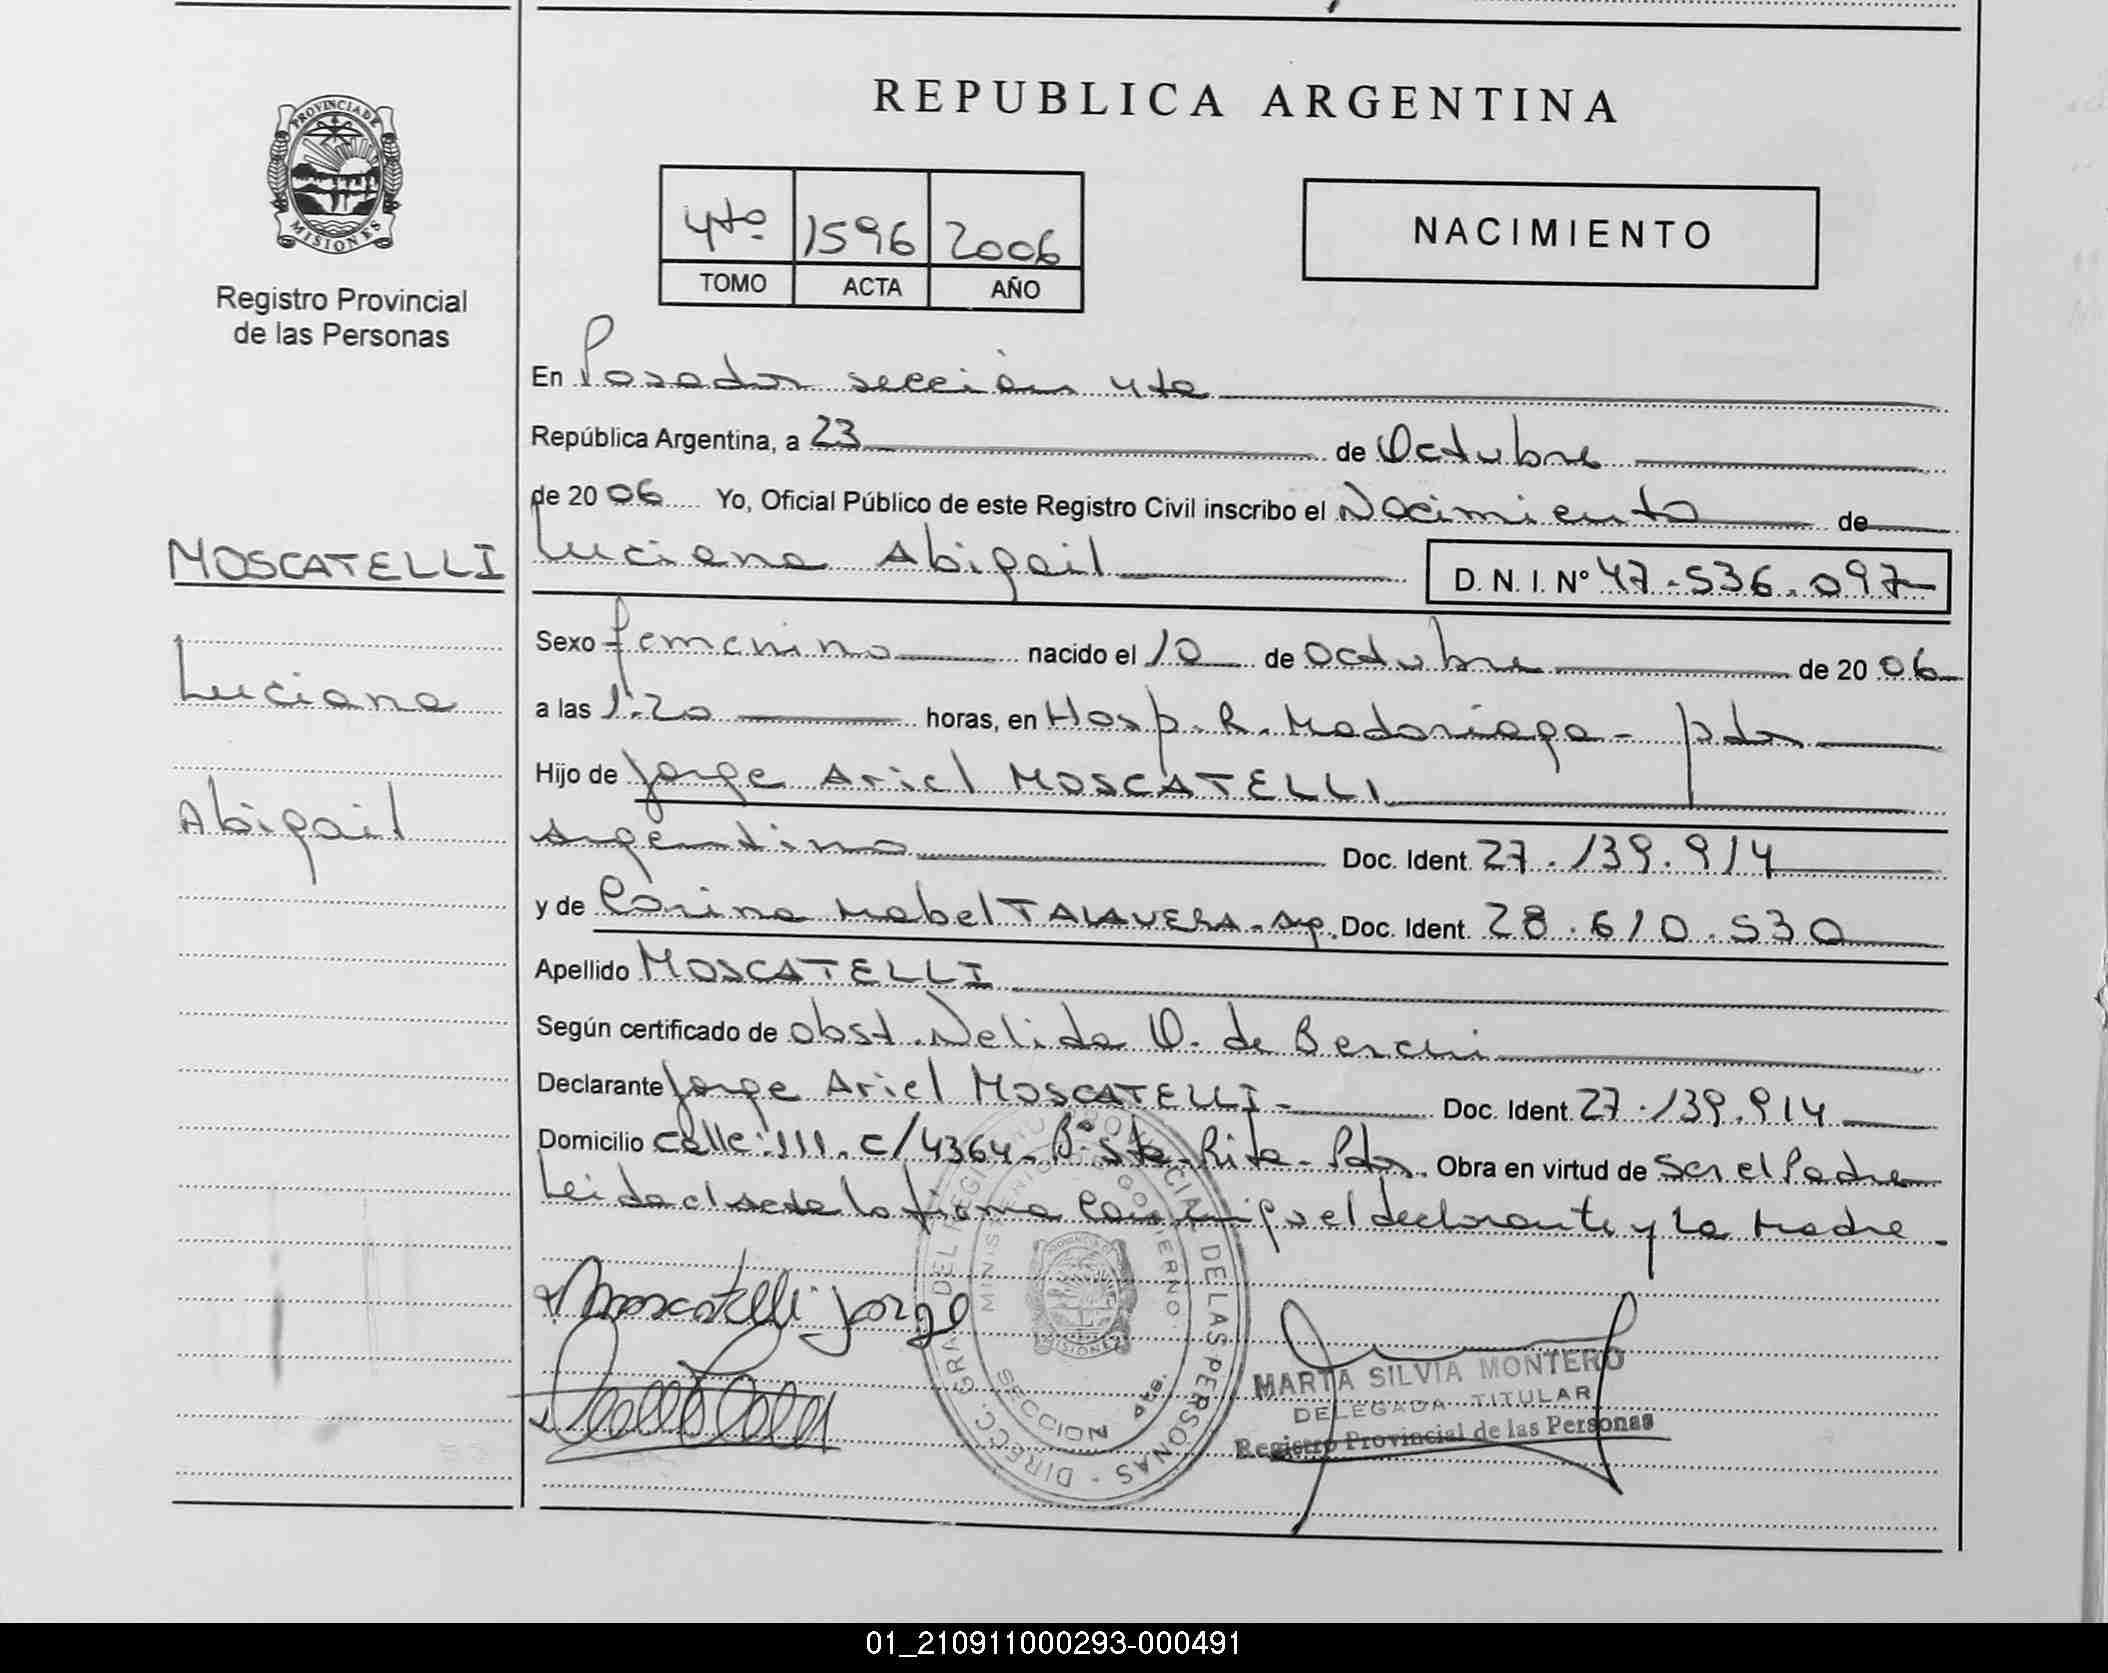 REPUBLICA ARGENTINA
PROVINCIA DE
MISIONES
Registro Provincial
de las Personas
4to 1596 2006
TOMO ACTA AÑO
NACIMIENTO
En Posadas sección 4ta
República Argentina, a 23 de Octubre
de 2006 Yo, Oficial Público de este Registro Civil inscribo el Nacimiento de
MOSCATELLI
Luciana Abigail D. N. I. Nº 47.536.097
Sexo femenino nacido el 10 de octubre de 2006
Luciana
a las 1:20 horas, en Hosp. R. Madariaga - pdas
Hijo de Jorge Ariel MOSCATELLI
Abigail
Argentino Doc. Ident. 27.139.914
y de Corina Mabel TALAVERA - Arg. Doc. Ident. 28.610.530
Apellido MOSCATELLI
Según certificado de obst. Nelida O. de
Declarante Jorge Ariel MOSCATELLI - Doc. Ident. 27.139.914
Domicilio calle: 111. c/4364 - Bº Sta. Rita - Pdas. Obra en virtud de ser el Padre
Leida el acta la firma conmigo el declarante y la Madre -
Moscatelli Jorge
DIRECC. GRAL. DEL REGISTRO PROVINCIAL DE LAS PERSONAS
MINISTERIO DE GOBIERNO
PROVINCIA DE
MISIONES
SECCION 4ta.
MARTA SILVIA MONTERO
DELEGADA TITULAR
Registro Provincial de las Personas
01_210911000293-000491